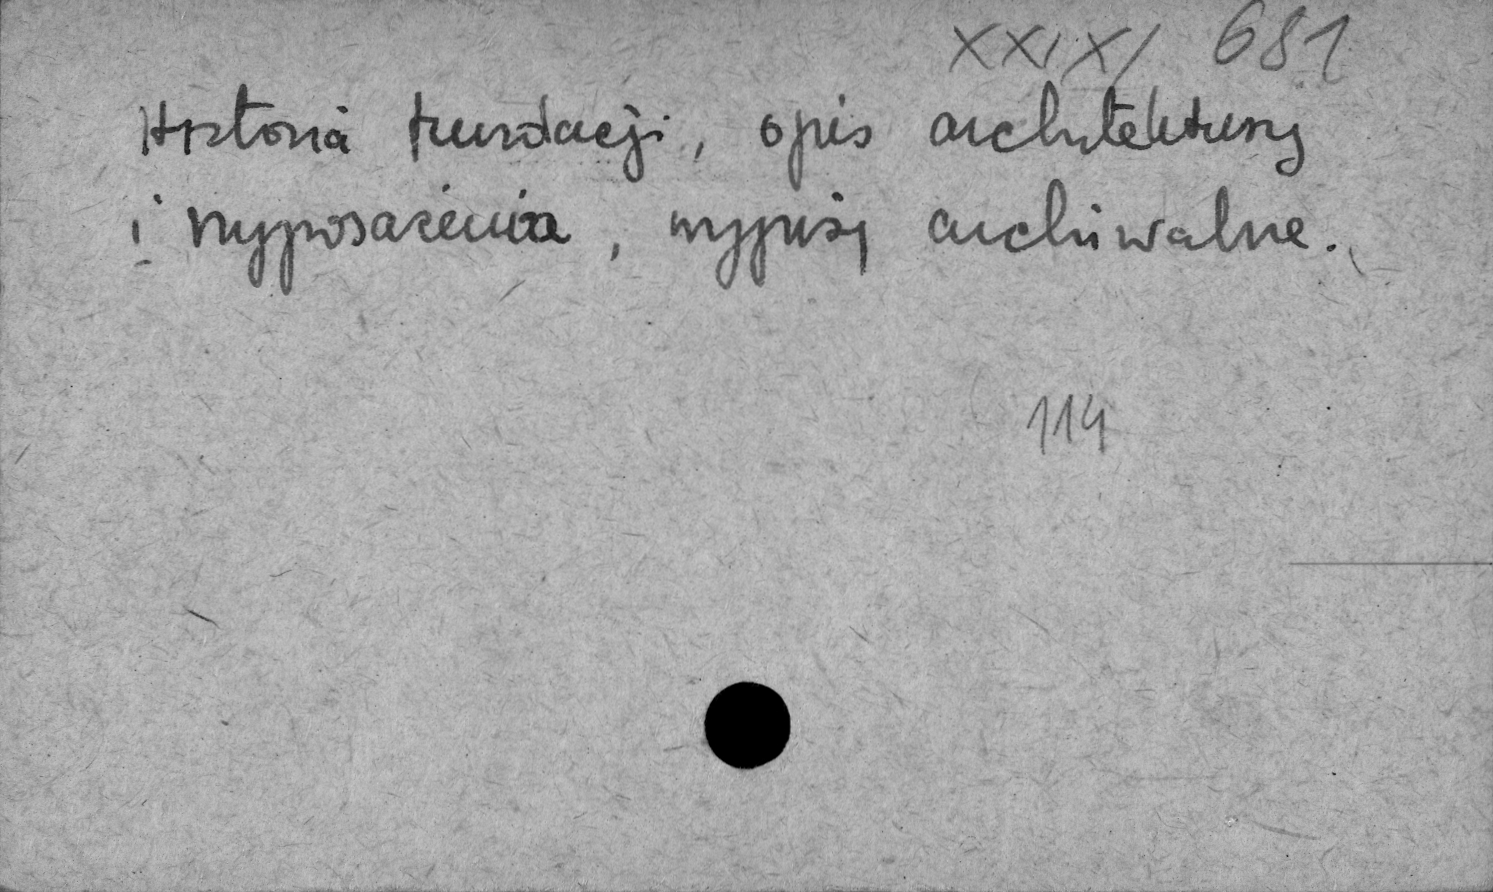 XXIX/ 681
Historia fundacji, opis architektury
i wyposażenia, wypisy archiwalne.
114